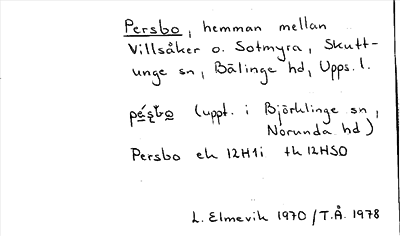 Persbo, hemman mellan
Villsåker o. Sotmyra, Skutt-
unge sn, Bälinge hd, Upps. l.
(uppt. i Björklinge sn,
Norunda hd)
Persbo ek 12H1i tk 12HSO
L. Elmevik 1970/T.Å. 1978